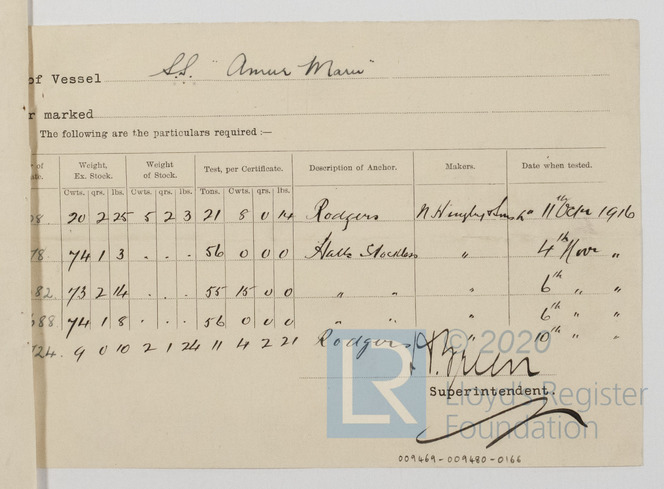 of Vessel S.S. "Amur Maru"
r marked
The following are the particulars required :—
r of ate. Weight, Ex. Stock. Weight of Stock. Test, per Certificate. Description of Anchor. Makers. Date when tested.
Cwts. qrs. lbs. Cwts. qrs. lbs. Tons. Cwts. qrs. lbs.
08. 20 2 25 5 2 3 21 8 0 14 Rodgers N. Hingley & Sons Ld 11th Octr 1916
78. 74 1 3 . . . 56 0 0 0 Halls Stockless " 4th Novr "
82. 73 2 14 . . . 55 15 0 0 " " " 6th " "
88 74 1 8 . . . 56 0 0 0 " " " 6th " "
724. 9 0 10 2 1 24 11 4 2 21 Rodgers " 10th " "
© 2020
LR Lloyd's Register Foundation
Green
Superintendent.
009469-009480-0166